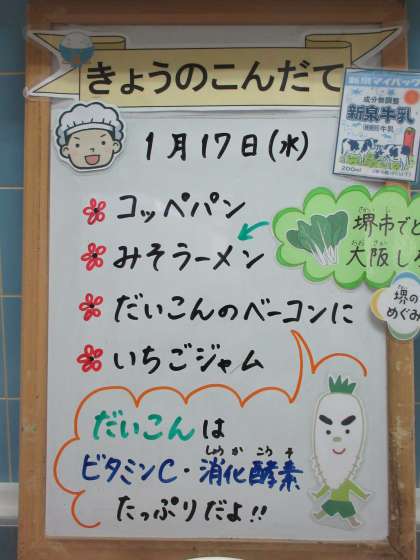 きょうのこんだて
新泉マイパック
成分無調整
新泉牛乳
200ml
1月17日(水)
コッペパン
みそラーメン
堺市でと
大阪し
だいこんのベーコンに
堺の
めぐみ
いちごジャム
だいこんは
ビタミンC・消化酵素
しょうかこうそ
たっぷりだよ!!